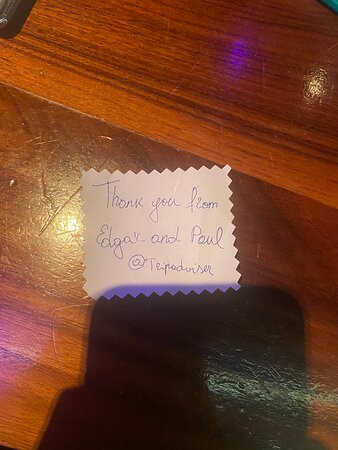 Thank you from
Edgar and Paul
@Tripadviser